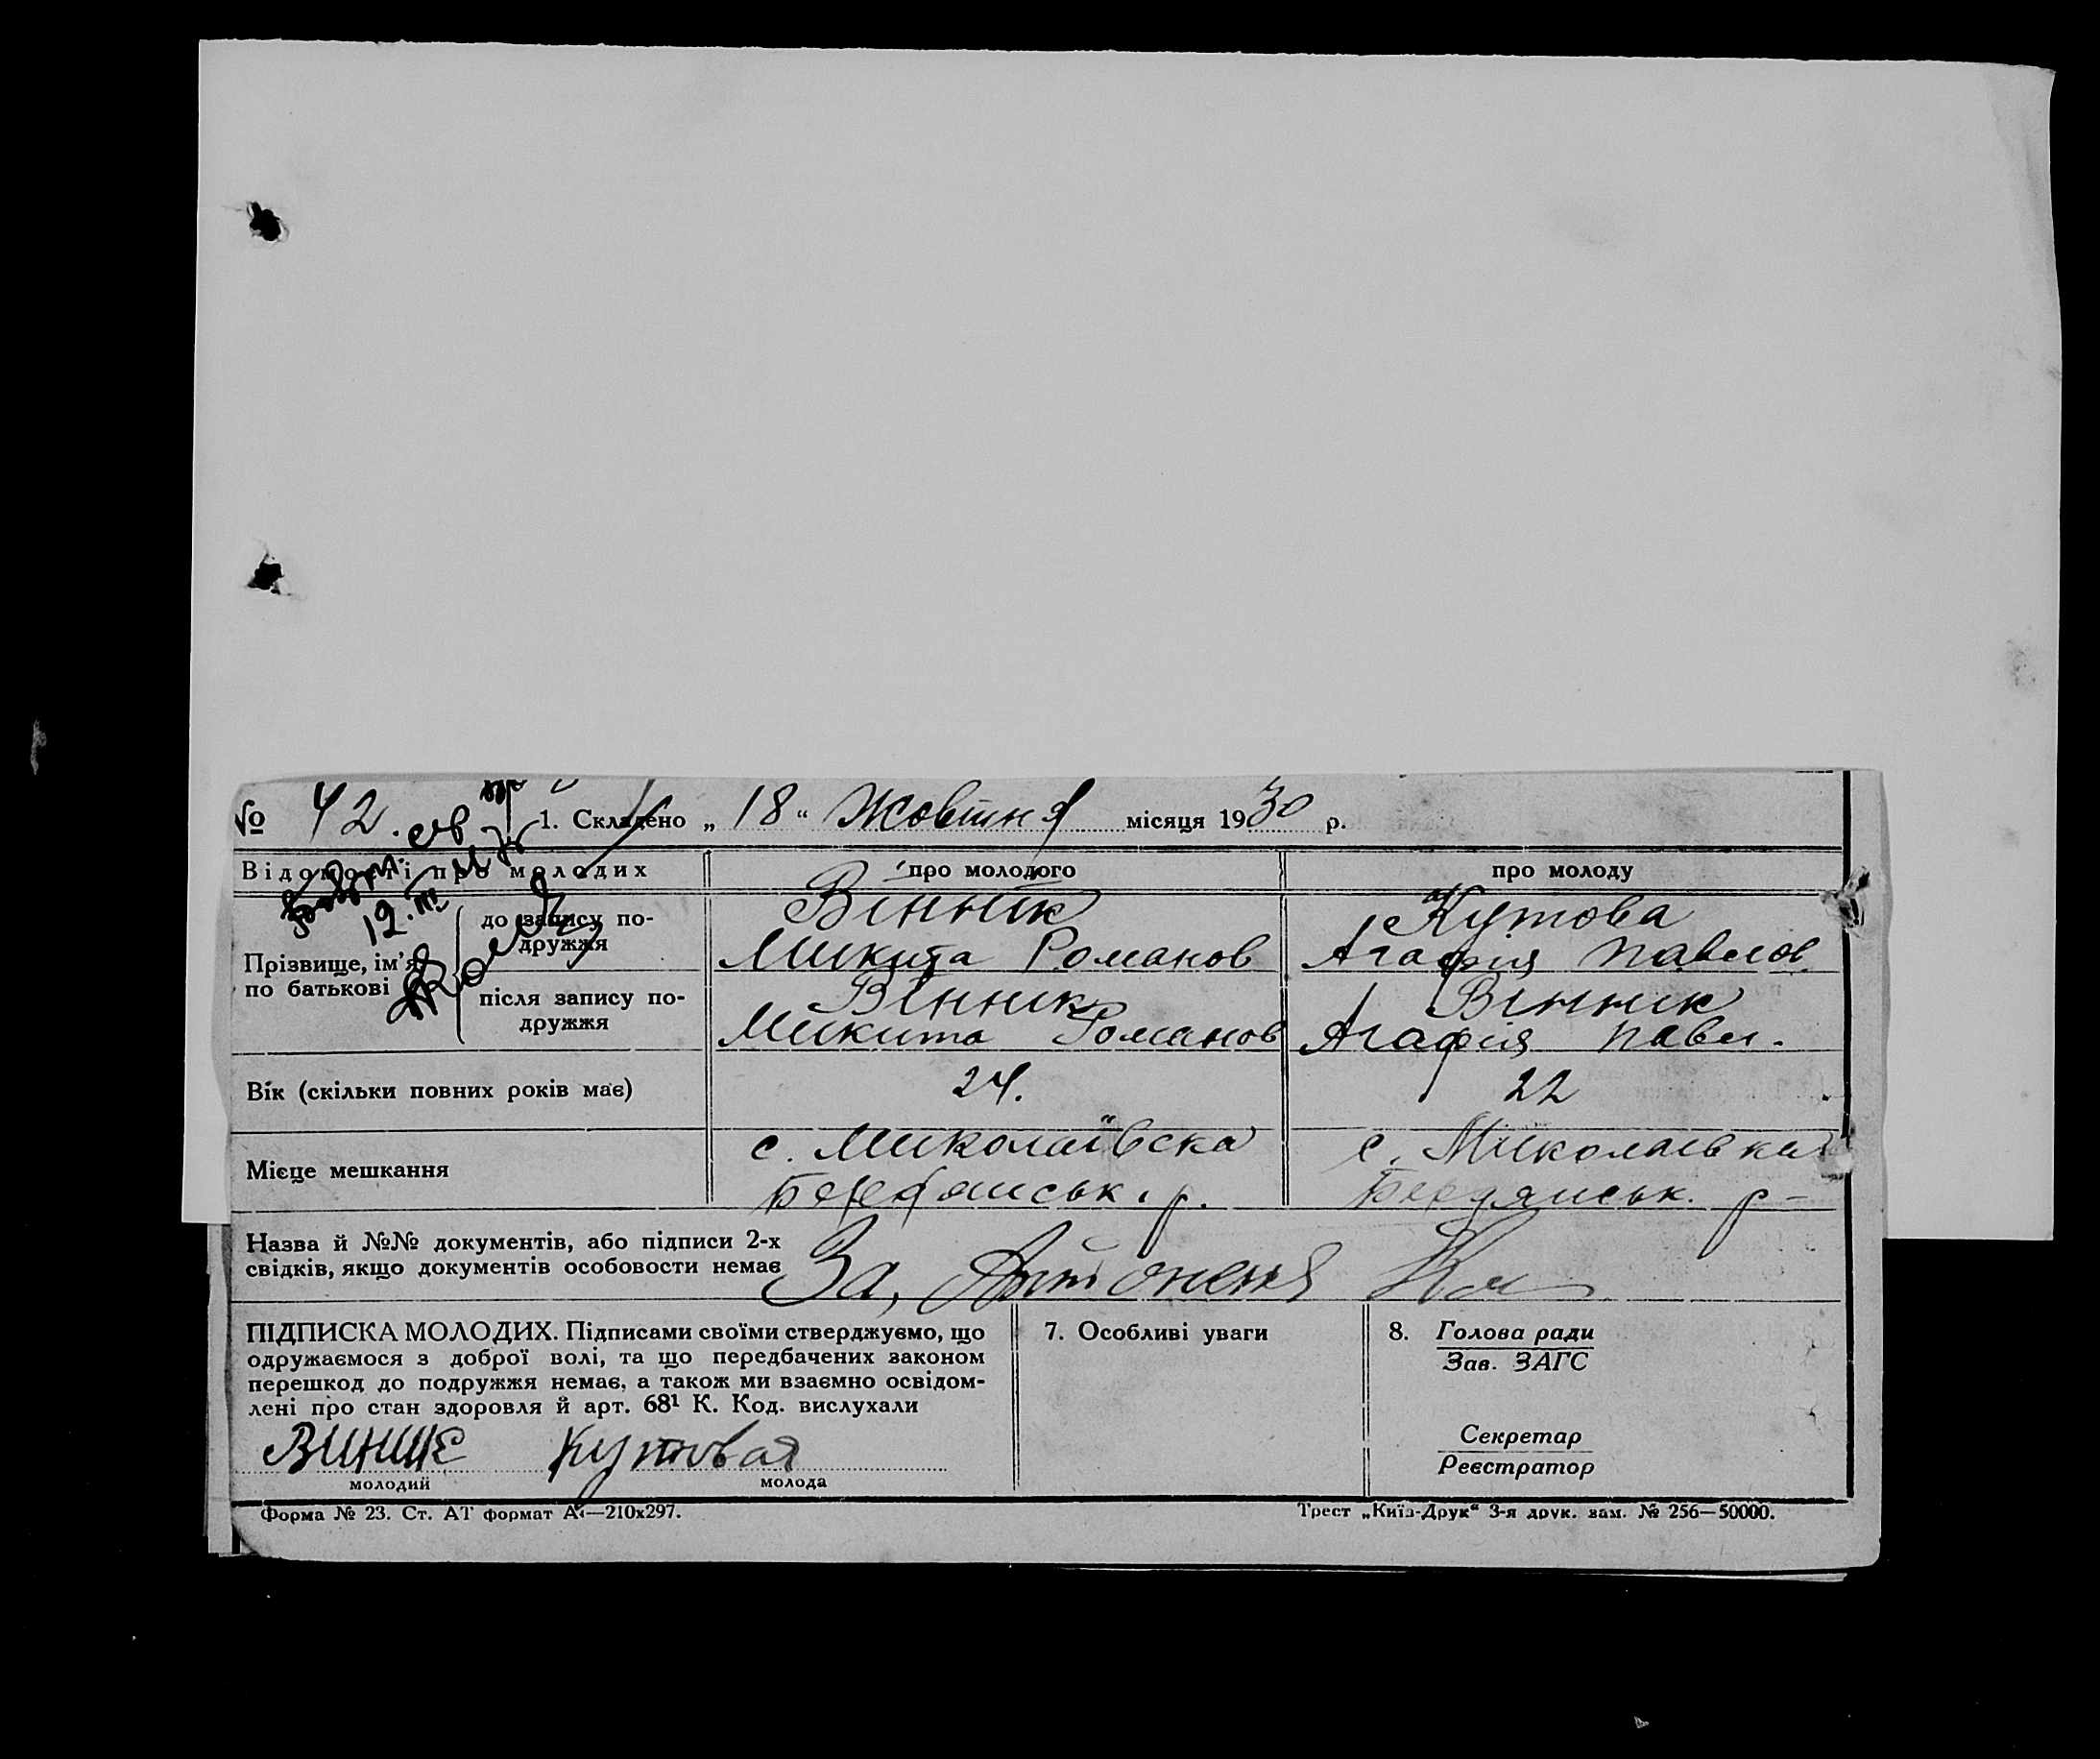 № 42. 1. Складено „ 18 “ Жовтня місяця 1930 р.
Відомості про молодих про молодого про молоду
Прізвище, ім’я по батькові
до запису по-
дружжя
Віннік Кутова
Микита Романов Агафія Павлов.
після запису по-
дружжя
Віннік Віннік
Микита Романов Агафія Павл.
12.III
Вік (скільки повних років має) 24. 22
Місце мешкання
с. Миколаївска с. Миколаівка
Бердянськ. р. Бердянськ. р-
Назва й №№ документів, або підписи 2-х
свідків, якщо документів особовости немає
За,
ПІДПИСКА МОЛОДИХ. Підписами своїми стверджуємо, що
одружаємося з доброї волі, та що передбачених законом
перешкод до подружжя немає, а також ми взаємно освідом-
лені про стан здоровля й арт. 68¹ К. Код. вислухали
Кутовая
молодий молода
7. Особливі уваги
8. Голова ради
Зав. ЗАГС
Секретар
Реєстратор
Форма № 23. Ст. АТ формат А4—210х297. Трест „Київ-Друк“ 3-я друк. зам. № 256—50000.